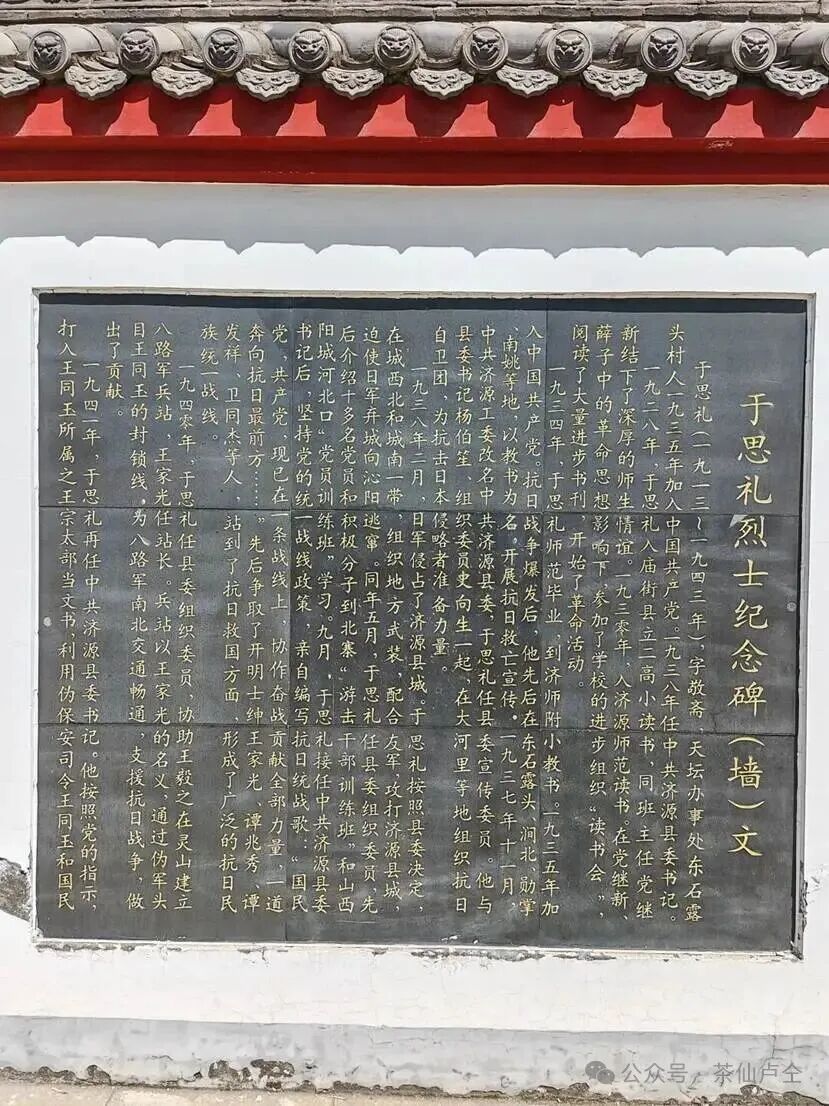 于思礼烈士纪念碑（墙）文
于思礼（一九一三～一九四三年），字敬斋，天坛办事处东石露
头村人一九三五年加入中国共产党。一九三八年任中共济源县委书记。
一九二八年，于思礼入庙街县立二高小读书，同班主任党继
新结下了深厚的师生情谊。一九三零年，入济源师范读书。在党继新、
薛子中的革命思想影响下，参加了学校的进步组织“读书会”，
阅读了大量进步书刊，开始了革命活动。
一九三四年，于思礼师范毕业，到济师附小教书。一九三五年加
入中国共产党。抗日战争爆发后，他先后在东石露头、涧北、勋掌
、南姚等地，以教书为名。开展抗日救亡宣传。一九三七年十一月，
中共济源工委改名中共济源县委，于思礼任县委宣传委员。他与
县委书记杨伯笙、组织委员史向生一起，在大河里等地组织抗日
自卫团，为抗击日本侵略者准备力量。
一九三八年二月，日军侵占了济源县城。于思礼按照县委决定，
在城西北和城南一带，组织地方武装，配合友军，攻打济源县城，
迫使日军弃城向沁阳逃窜。同年五月，于思礼任县委组织委员，先
后介绍十多名党员和积极分子到北寨“游击干部训练班”和山西
阳城河北口“党员训练班”学习。九月，于思礼接任中共济源县委
书记后，坚持党的统一战线政策，亲自编写抗日统战歌：“国民
党，共产党，现已在一条战线上，协作奋战贡献全部力量，一道
奔向抗日最前方……”先后争取了开明士绅王家光、谭兆秀、谭
发祥、卫同杰等人，站到了抗日救国方面，形成了广泛的抗日民
族统一战线。
一九四零年，于思礼任县委组织委员，协助王毅之在灵山建立
八路军兵站，王家光任站长。兵站以王家光的名义，通过伪军头
目王同玉的封锁线，为八路军南北交通畅通，支援抗日战争，做
出了贡献。
一九四一年，于思礼再任中共济源县委书记。他按照党的指示，
打入王同玉所属之王宗太部当文书，利用伪保安司令王同玉和国民
公众号·茶仙卢仝